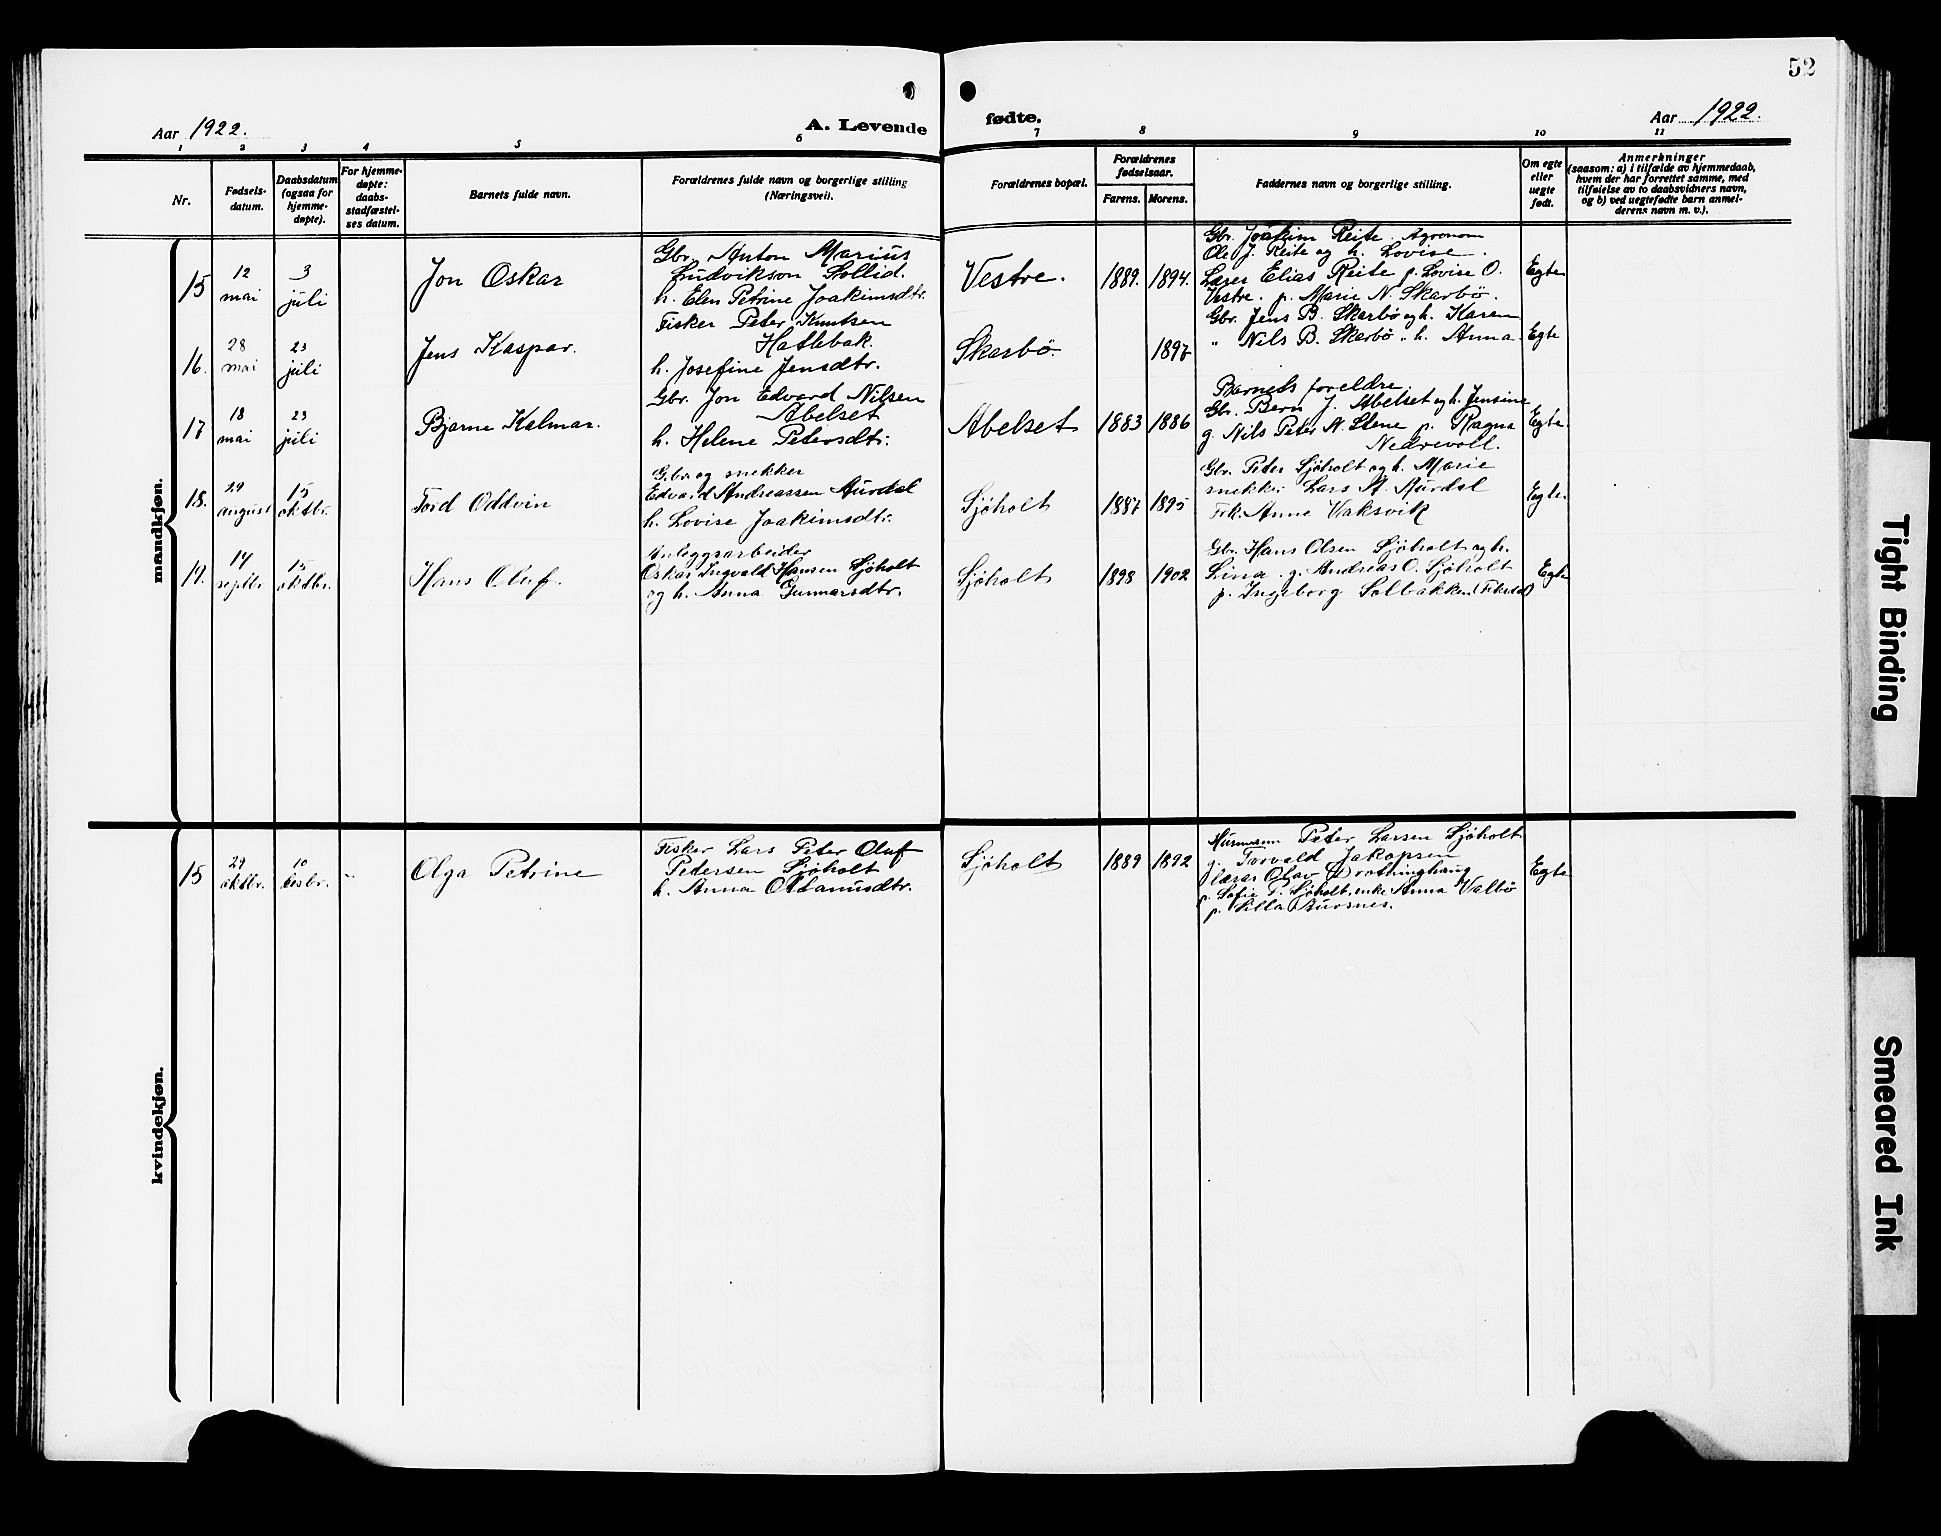 52
Aar 1922.
A. Levende
fødte.
Aar 1922.
1 2 3 4 5 6 7 8 9 10 11
Nr.
Fødsels-
datum.
Daabsdatum
(ogsaa for
hjemme-
døpte).
For hjemme-
døpte:
daabs-
stadfæstel-
ses datum.
Barnets fulde navn.
Forældrenes fulde navn og borgerlige stilling
(Næringsvei).
Forældrenes bopæl.
Forældrenes
fødselsaar.
Farens. Morens.
Faddernes navn og borgerlige stilling.
Om egte
eller
uegte
født.
Anmerkninger
(saasom: a) i tilfælde av hjemmedaab,
hvem der har forrettet samme, med
tilføielse av to daabsvidners navn,
og b) ved uegtefødte barn anmel-
derens navn m. v.).
mandkjøn.
15
12
mai
3
juli
Jon Oskar
Gbr. Anton Marius
Ludvikson Sollid.
h. Elen Petrine Joakimsdtr.
Vestre.
1889. 1894.
Gbr. Joakim Reite. Agronom
Ole J. Reite og h. Lovise.
Lærer Elias Reite p. Lovise O.
Vestre. p. Marie N. Skarbö.
Egte
16.
28
mai
23
juli
Jens Kaspar.
Fisker Peter Knutsen
Hatlebak.
h. Josefine Jensdtr.
Skarbö.
1897
Gbr. Jens B. Skarbö og h. Karen
" Nils B. Skarbö " h. Anna.
Egte
17
18
mai
23
juli
Bjarne Kalmar.
Gbr. Jon Edvard Nilsen
Abelset
h. Helene Petersdtr.
Abelset
1883 1886
Barnets foreldre.
Gbr. Bern J. Abelset og h. Jensine
g. Nils Peter N. Stene p. Ragna
Nedrevoll.
Egte.
18.
29
august
15
oktbr.
Tord Oddvin
Gbr. og snekker
Edvard Andreassen Aurdal
h. Lovise Joakimsdtr.
Sjöholt
1887 1895
Gbr. Peter Sjöholt og h. Marie
snekker Lars A. Aurdal
Frk. Anne Vaksvik
Egte.
19.
14
septbr.
15
oktbr.
Hans Oluf.
Anleggsarbeider
Oskar Ingvald Hansen Sjöholt
og h. Anna Gunnarsdtr.
Sjöholt
1898 1902
Gbr. Hans Olsen Sjöholt og h.
Lina. g. Andreas O. Sjöholt
p. Ingeborg Solbakken (Fiksdal)
Egte
kvindekjøn.
15
29
oktbr.
10
desbr.
Olga Petrine
Fisker Lars Peter Oluf
Petersen Sjöholt
h. Anna Ottanusdtr.
Sjöholt
1889 1892
Husmann Peter Larsen Sjöholt
g. Torvald Jakopsen
lærar Olav
p. Sofie P. Sjöholt. enke Anna Valbö
p. Aursnes.
Egte
Tight Binding
Smeared Ink